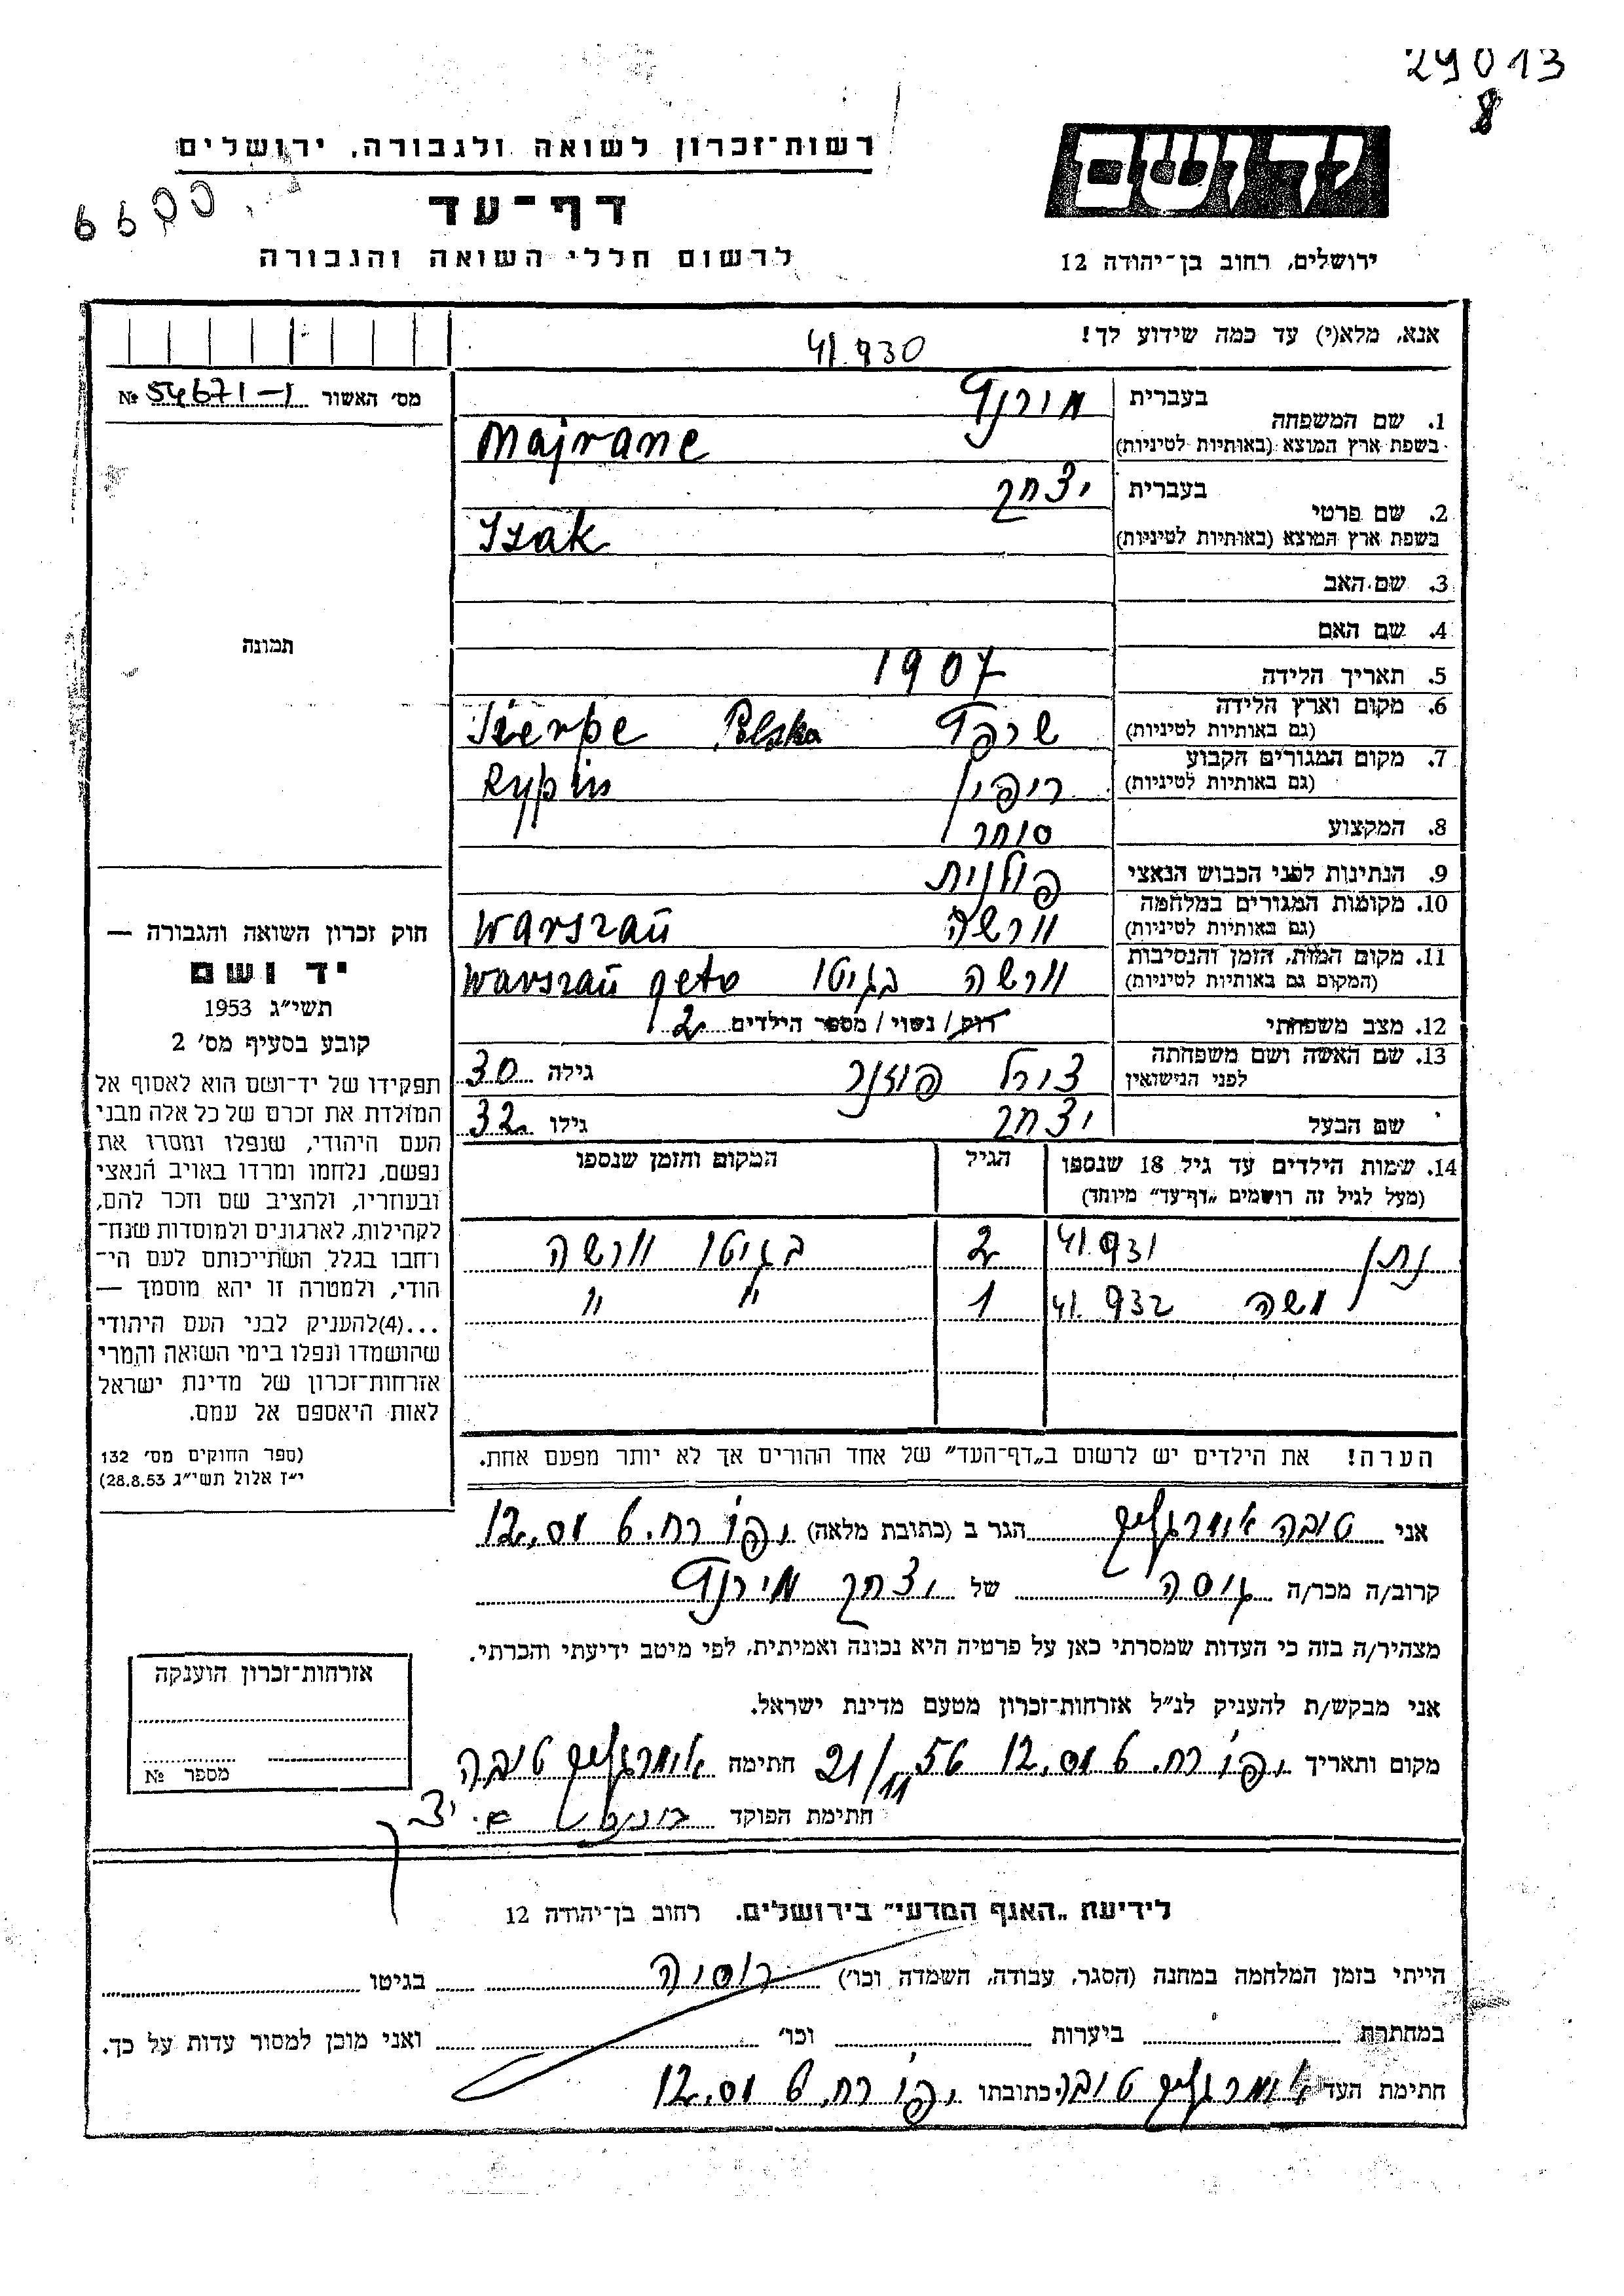 29013
8
רשות־זכרון לשואה ולגבורה, ירושלים
ידושם
דף־עד
לרשום חללי השואה והגבורה
ירושלים, רחוב בן־יהודה 12
אנא, מלא(י) עד כמה שידוע לך!
41.930
מס׳ האשור № 54671-1
1. שם המשפחה
בעברית
בשפת ארץ המוצא (באותיות לטיניות)
Majranc
2. שם פרטי
בעברית יצחק
בשפת ארץ המוצא (באותיות לטיניות) Izak
3. שם האב
4. שם האם
5. תאריך הלידה 1907
6. מקום וארץ הלידה
(גם באותיות לטיניות) שרפץ Polska Sierpc
7. מקום המגורים הקבוע
(גם באותיות לטיניות) ריפין Rypin
8. המקצוע סוחר
9. הנתינות לפני הכבוש הנאצי פולנית
10. מקומות המגורים במלחמה
(גם באותיות לטיניות) וורשה Warszaŭ
11. מקום המות, הזמן והנסיבות
(המקום גם באותיות לטיניות) וורשה בגיטו Warszaŭ geto
12. מצב משפחתי רוק / נשוי / מספר הילדים 2
13. שם האשה ושם משפחתה
לפני הנישואין צירל פוזנר גילה 30
שם הבעל יצחק גילו 32
14. שמות הילדים עד גיל 18 שנספו הגיל המקום והזמן שנספו
(מעל לגיל זה רושמים „דף־עד” מיוחד)
נתן 41.931 2 בגיטו וורשה
משה 41.932 1 " "
הערה! את הילדים יש לרשום ב„דף־העד” של אחד ההורים אך לא יותר מפעם אחת.
תמונה
חוק זכרון השואה והגבורה —
יד ושם
תשי״ג 1953
קובע בסעיף מס׳ 2
תפקידו של יד־ושם הוא לאסוף אל
המולדת את זכרם של כל אלה מבני
העם היהודי, שנפלו ומסרו את
נפשם, נלחמו ומרדו באויב הנאצי
ובעוזריו, ולהציב שם וזכר להם,
לקהילות, לארגונים ולמוסדות שנח־
רבו בגלל השתייכותם לעם הי־
הודי, ולמטרה זו יהא מוסמך —
...(4) להעניק לבני העם היהודי
שהושמדו ונפלו בימי השואה והמרי
אזרחות־זכרון של מדינת ישראל
לאות היאספם אל עמם.
(ספר החוקים מס׳ 132
י״ז אלול תשי״ג 28.8.53)
אני טובה הגר ב (כתובת מלאה) יפו רח. 6 מס 12
קרוב/ה מכר/ה גיסה של יצחק
מצהיר/ה בזה כי העדות שמסרתי כאן על פרטיה היא נכונה ואמיתית, לפי מיטב ידיעתי והכרתי.
אני מבקש/ת להעניק לנ״ל אזרחות־זכרון מטעם מדינת ישראל.
מקום ותאריך יפו רח. 6 מס 12 21/11 56 חתימה טובה
חתימת הפוקד
אזרחות־זכרון הוענקה
מספר №
לידיעת „האגף המדעי” בירושלים. רחוב בן־יהודה 12
הייתי בזמן המלחמה במחנה (הסגר, עבודה, השמדה וכו׳) רוסיה בגיטו
במחתרת ביערות וכו׳ ואני מוכן למסור עדות על כך.
חתימת העד טובה כתובתו יפו רח. 6 מס 12